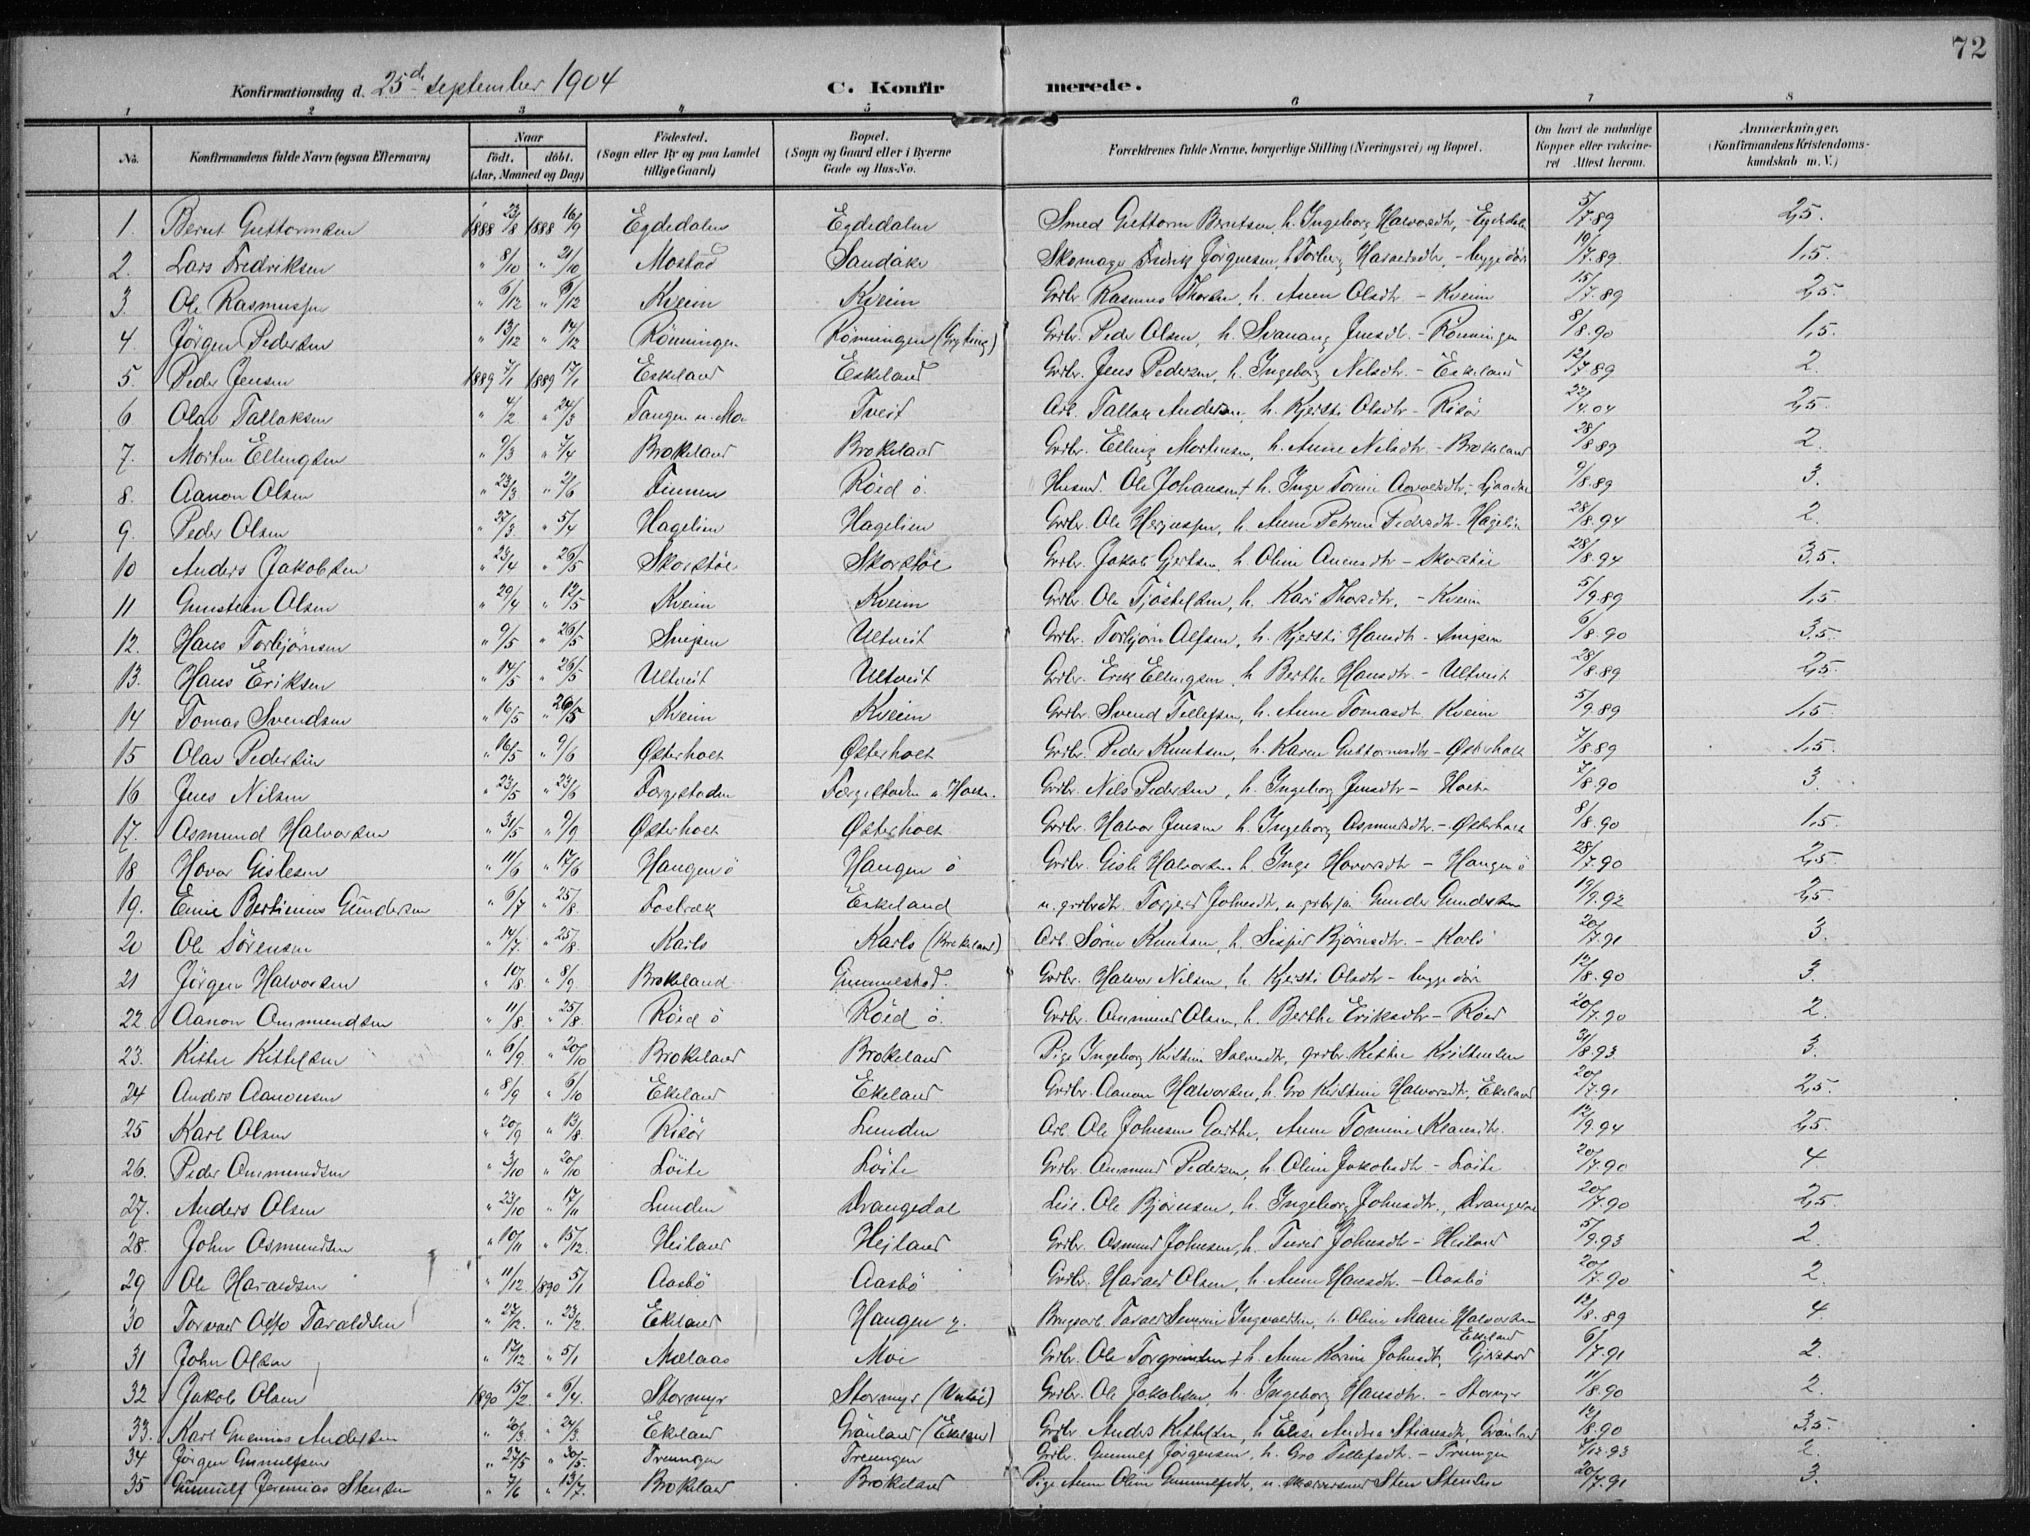 72
Konfirmationsdag d. 25de september 1904 C. Konfirmerede.
1 2 3 4 5 6 7 8
No. Konfirmandens fulde Navn (ogsaa Efternavn) Naar født. døbt. (Aar, Maaned og Dag) Fødested. (Sogn eller By og paa Landet tillige Gaard) Bopæl. (Sogn og Gaard eller i Byerne Gade og Hus-No. Forældrenes fulde Navne, borgerlige Stilling (Næringsvei) og Bopæl. Om havt de naturlige Kopper eller vakcineret Attest herom. Anmærkninger, (Konfirmandens Kristendomskundskab m. V.)
1. Bernt Guttormsen 1888 23/8 1888 16/9 Egdedalen Egdedalen Smed Guttorm Berntsen, h. Ingeborg Halvorsdtr. - Egdedalen 5/7.89 2,5.
2. Lars Fredriksen " 8/10 " 21/10 Mostad Sandåker Skomager Fredrik Jørgensen, h. Torberg - byggedør 19/7.89. 1,5.
3. Ole Rasmussen " 6/12 " 9/12 Kveim Kveim Grdbr. Rasmus Thorsen, h. Anen Olsdtr - Kveim 15/7.89 2,5.
4 Jørgen Pedersen " 13/12 " 14/12 Rønningen Rønningen (Gryting) Grdbr. Peder Olsen, h. Svanaug Jensdtr. - Rønningen 8/8.90 1,5.
5. Peder Jensen 1889 7/1 1889 17/1 Eskeland Eskeland Grdbr. Jens Pedersen, h. Ingeborg Nilsdtr. - Eskeland 12/7.89 2.
6 Olav Tallaksen " 4/2 " 24/3 Tangen u. Mo Tveit Arb. Tallak Andersen, h. Kjersti Olsdtr - Risør 22/4.04 2,5.
7. Morten Ellingsen " 9/3 " 7/4 Brokeland Brokeland Grdbr. Elling Mortensen, h. Anne Nilsdtr. - Brokeland 28/8.89 2.
8. Aanon Olsen " 23/3 " 2/6 Finnen Røed ø. Husmd. Ole Johansen † h. Inge Torine 9/8.89 3.
9. Peder Olsen " 27/3 " 5/4 Hagelien Hagelien Grdbr. Ole h. Anne Petrine Pedersdtr - Hagelien 28/8.94 2.
10 Anders Jakobsen " 23/4 " 26/5 Skorstøl Skorstøl Grdbr. Jakob Gjertsen, h. Oline - Skorstøl 28/8.94 3,5.
11 Gunsteen Olsen " 29/4 " 12/5 Kveim Kveim Grdbr. Ole Tjøstelsen, h. Kari Thorsdtr. - Kveim 5/9.89 1,5.
12. Hans Torbjørnsen " 9/5 " 26/5 Snipen Ultveit Grdbr. Torbjørn Alfsen, h. Kjersti Hansdtr - Snipen 6/8.90 3,5.
13. Hans Eriksen " 14/5 " 26/5 Ultveit Ultveit Grdbr. Erik Ellingsen, h. Berthe Hansdtr. - Ultveit 28/8.89 2,5.
14 Tomas Svendsen " 16/5 " 26/5 Kveim Kveim Grdbr. Svend Tellefsen, h. Anne Tomasdtr Kveim 5/9.89 1,5.
15 Olav Pedersen " 16/5 " 9/6 Østerholt Østerholt Grdbr. Peder Knutsen, h. Karen Guttormsdtr - Østerholt 7/8.89 1,5.
16 Jens Nilsen " 23/5 " 23/6 Færgestaden Færgestaden u Holte. Grdbr. Nils Pedersen, h. Ingeborg Jensdtr - Holte 7/8.90 3.
17. Asmund Halvorsen " 31/5 " 9/9 Østerholt Østerholt Grdbr. Halvor Jensen h. Ingeborg Asmundsdtr. - Østerholt 8/8.90 1,5.
18 Havor Gislesen " 11/6 " 17/6 Haugen ø Haugen ø Grdbr. Gisle Halvorsen h. Inge Havorsdtr - Haugen ø 28/7.90 2,5.
19. Emil Bertinius Gundersen " 6/7 " 25/8. Fosbræk Eskeland u. grdbrdtr. Torjerd Johnsdtr, u. grdbrsøn Gunder Gundersen 19/9.92 2,5.
20 Ole Sørensen " 14/7 " 25/8 Karls Karls (Brokeland) Arb. Søren Knutsen, h. Bjørnsdtr. - Karls 20/7.91 3.
21 Jørgen Halvorsen " 10/8 " 8/9. Brokeland Gunnulstad. Grdbr. Halvor Nilsen, h. Kjersti Olsdtr - byggedør 12/8.90 3.
22. Aanon Ommundsen " 11/8. " 25/8. Røed ø Røed ø. Grdbr. Ommund Olsen, h. Berthe Eriksdtr - Røed 20/7.90 2.
23. Kittel Kittelsen " 6/9. " 20/10 Brokeland Brokeland Pige Ingeborg Kirstine Salvesdtr, grdbr. Kittel Kristensen 31/8.93. 3.
24 Anders Aanonsen " 8/9 " 6/10 Ekeland Ekeland Grdbr. Aanon Halvorsen, h. Gro Kirstine Halvorsdtr, Ekeland 20/7.91 2,5.
25 Karl Olsen " 20/9 " 13/8. Risør Lunden Arb. Ole Johnsen Garthe, Anne Tomine 12/9.94 2,5.
26. Peder Ommundsen " 3/10 " 20/10 Løite Løite Grdbr. Ommund Pedersen, h. Oline Jakobsdtr - Løite 20/7.90 4.
27. Anders Olsen " 23/10 " 17/11 Lunden Drangedal Leil. Ole Bjørnsen, h. Ingeborg Johnsdtr., Drangedal 20/7.90 2,5.
28. John Osmundsen " 10/11 " 15/12. Heiland Hejland Grdbr. Osmund Johnsen, h. Turid Johnsdtr - Heiland 5/9.93 2.
29 Ole Haraldsen " 11/12 1890 5/1 Aasbø Aasbø Grdbr. Harald Olsen, h. Anne Hansdtr. - Aasbø 20/7.90 2.
30 Torvald Otto Taraldsen " 27/12. " 23/2. Ekeland Haugen g. Brugsarb. Tarald Severin Ingvaldsen, h. Oline Marie Halvorsen Ekeland 12/8.89 4.
31 John Olsen " 17/12 " 5/1 Mælaas Moi Grdbr. Ole Torgrimsen † h. Anne Karine Johnsdtr, Gjerstad 6/7.91 2.
32 Jakob Olsen 1890 15/2. " 6/4. Stormyr Stormyr Grdbr. Ole Jakobsen, h. Ingeborg Hansdtr. - Stormyr 11/8.90 2.
33. Karl Andersen " 20/3. " 24/3. Ekeland Grønland (Ekeland) Grdbr. Anders Kittelsen, h. Elise Andrea Stiansdtr, Grønland 12/8.90 3,5.
34 Jørgen Gunnulfsen " 27/5 " 30/5. Treungen Treungen Grdbr. Gunnulf Jørgensen, h. Gro Tellefsdtr. - Treungen 7/12.93 2.
35 Gunnulf Jeremias Stensen " 7/6 " 13/7. Brokeland Brokeland Pige Anne Oline Gunnulfsdtr, u. Sten Stensen 20/7.91 3.